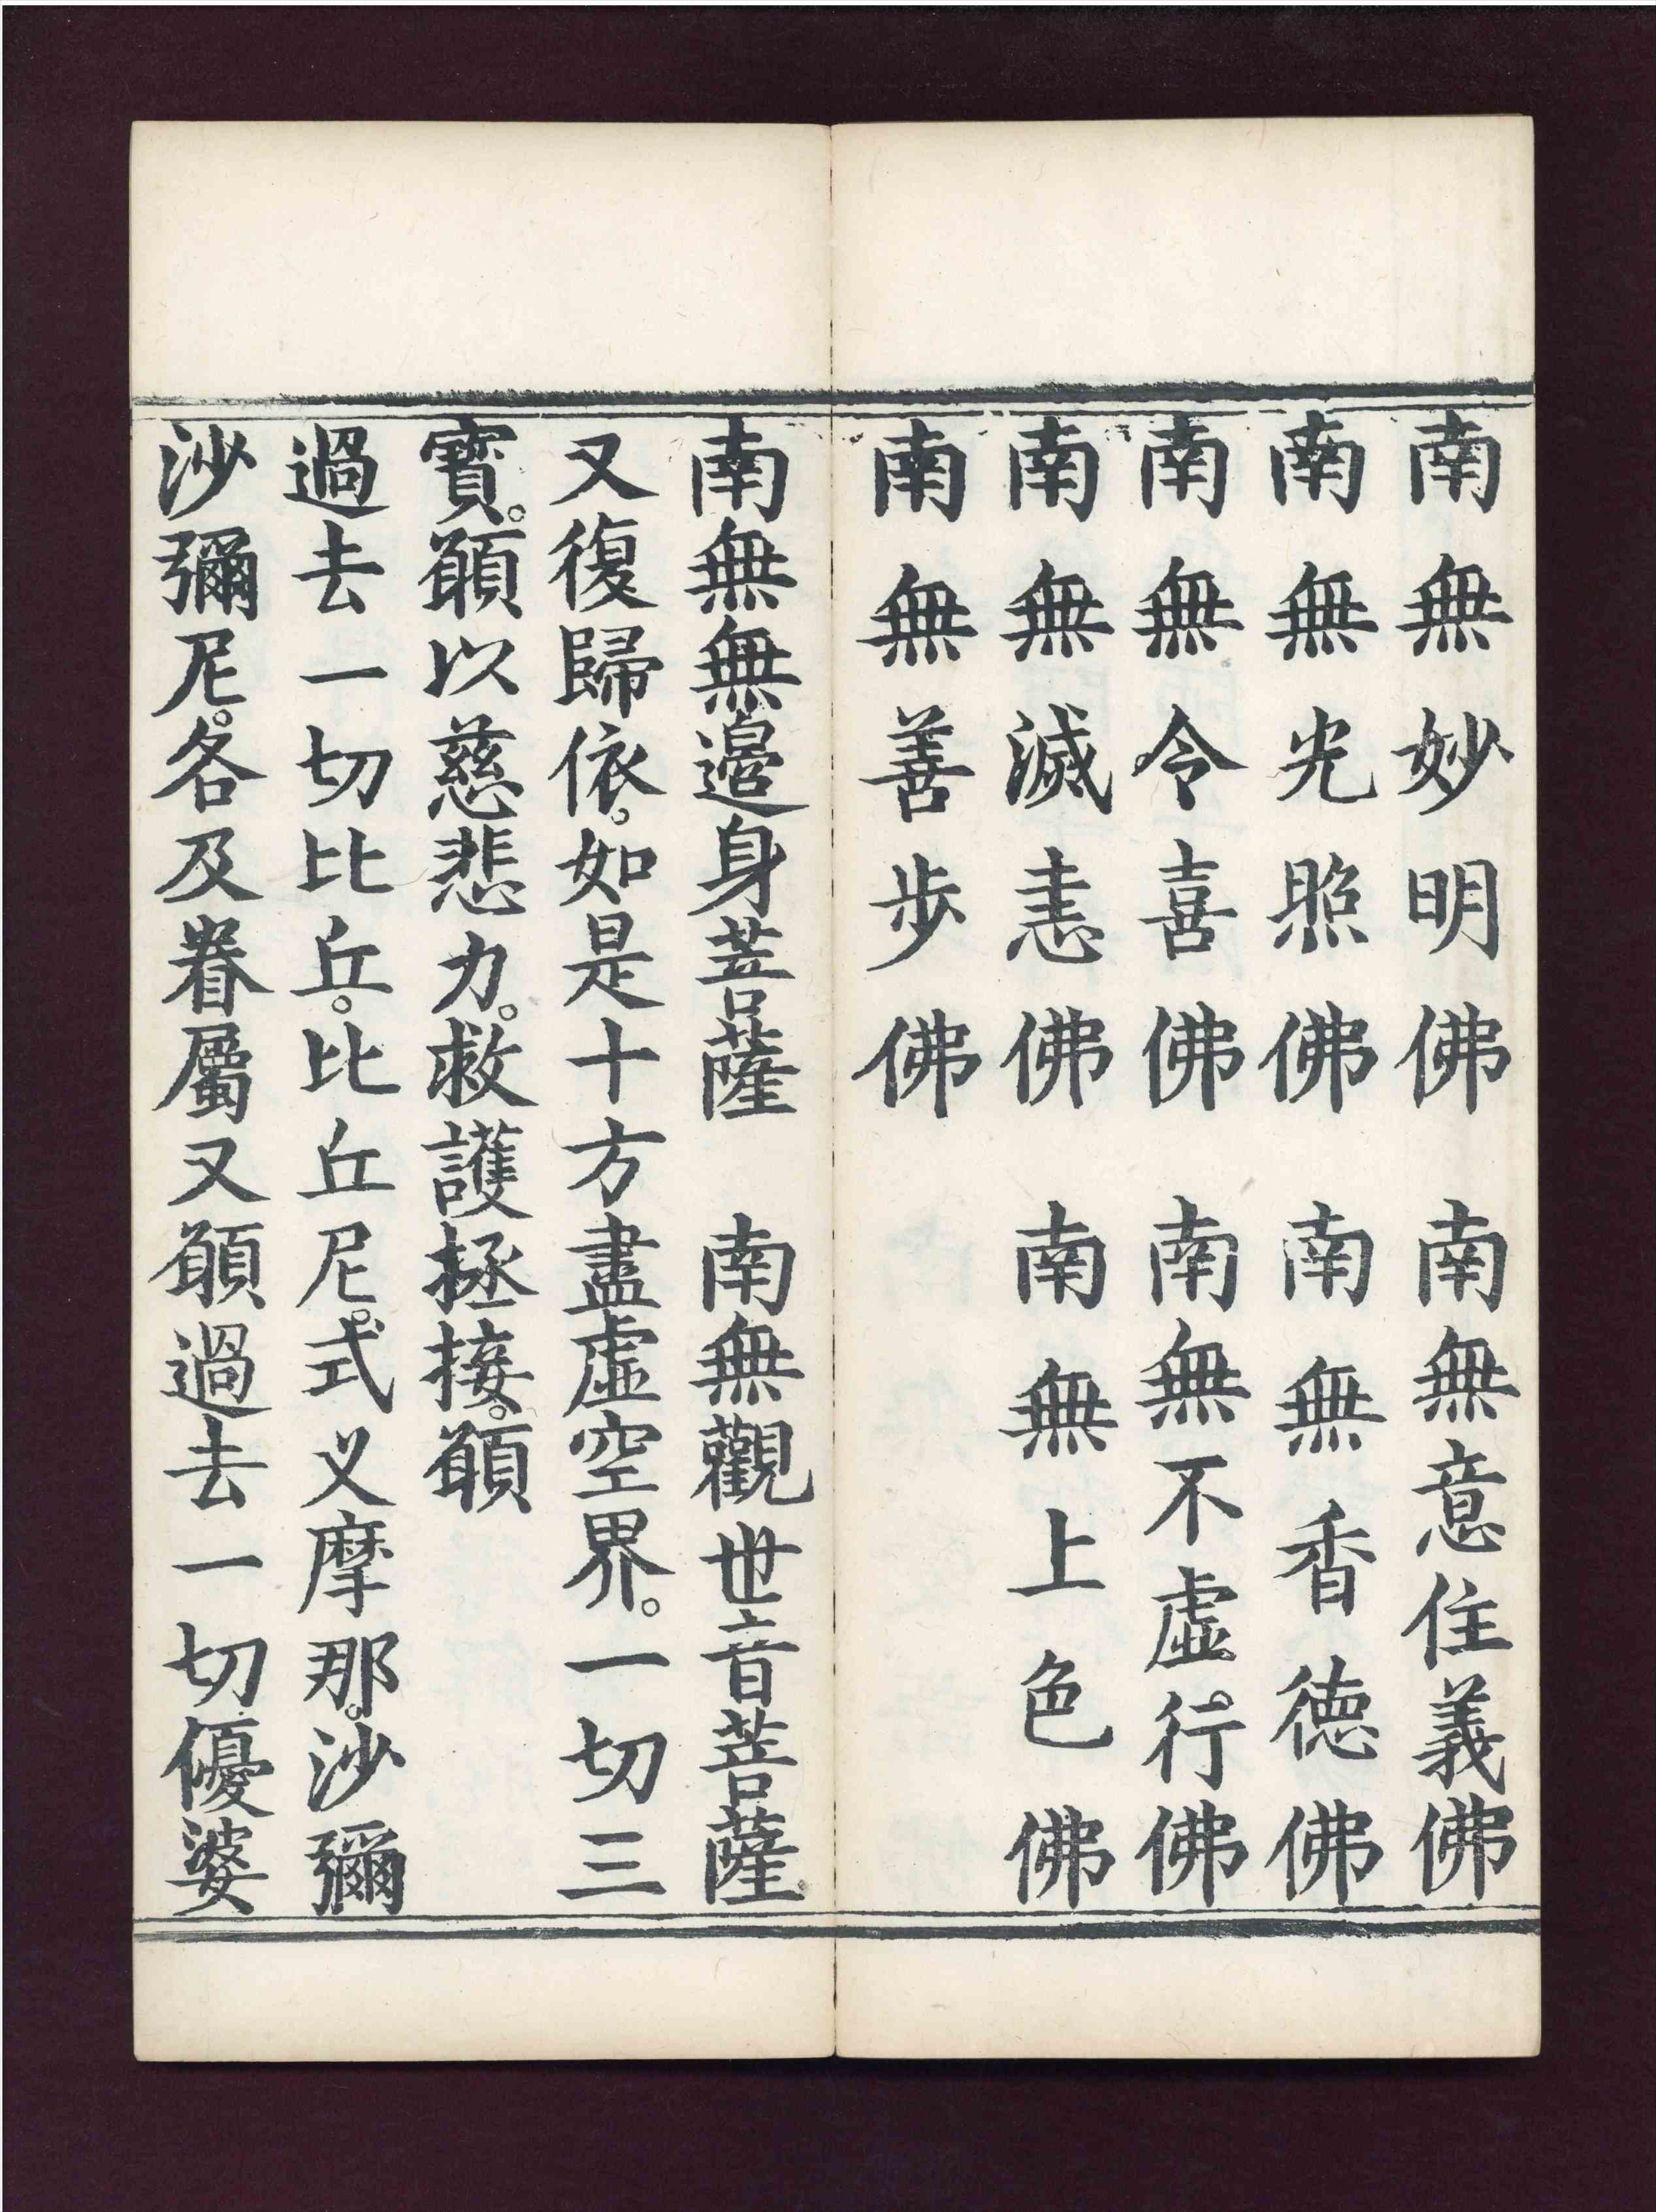 南無妙明佛　南無意住義佛
南無光照佛　南無香德佛
南無令喜佛　南無不虛行佛
南無滅恚佛　南無上色佛
南無善步佛
南無無邊身菩薩　南無觀世音菩薩
又復歸依。如是十方盡虛空界。一切三
寶。願以慈悲力。救護拯接。願
過去一切比丘。比丘尼。式义摩那。沙彌
沙彌尼。各及眷屬又願過去一切優婆